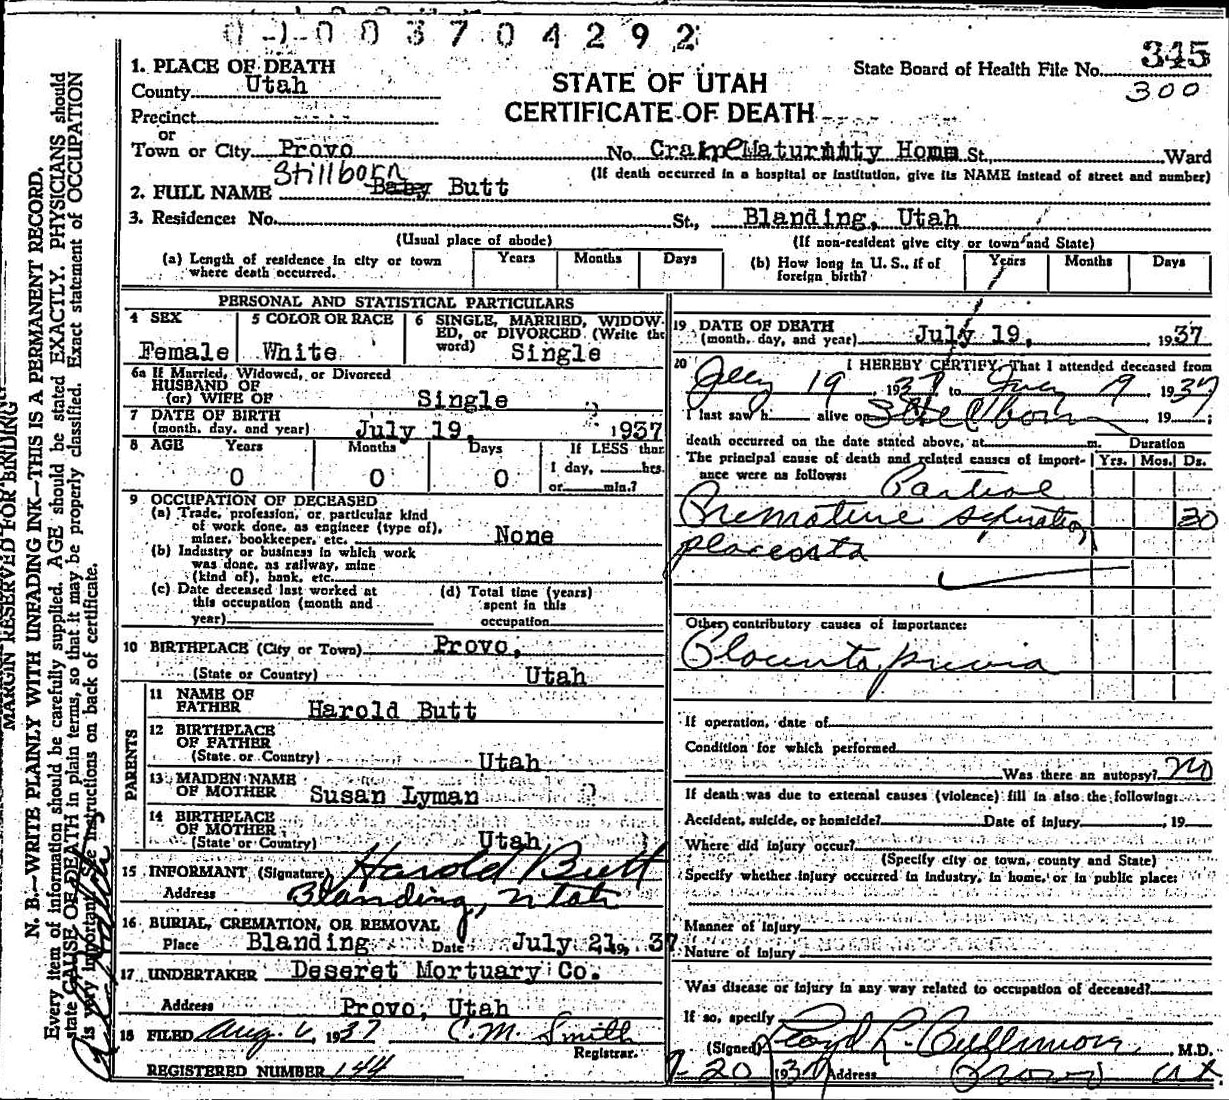 0 1 0 0 3 7 0 4 2 9 2
345
1. PLACE OF DEATH
State Board of Health File No.
300
County Utah
STATE OF UTAH
Precinct
CERTIFICATE OF DEATH
or
Town or City Provo No. Crane Maturnity Home St., Ward
(If death occurred in a hospital or institution, give its NAME instead of street and number)
Stillborn
2. FULL NAME Baby Butt
3. Residence: No. St., Blanding, Utah
(Usual place of abode) (If non-resident give city or town and State)
(a) Length of residence in city or town where death occurred. Years Months Days
(b) How long in U. S., if of foreign birth? Years Months Days
PERSONAL AND STATISTICAL PARTICULARS
4 SEX Female
5 COLOR OR RACE White
6 SINGLE, MARRIED, WIDOWED, or DIVORCED. (Write the word) Single
6a If Married, Widowed, or Divorced
HUSBAND OF
(or) WIFE OF Single
7 DATE OF BIRTH
(month, day, and year) July 19, 1937
8 AGE Years Months Days If LESS than
0 0 0 1 day, hrs.
or min.?
9 OCCUPATION OF DECEASED
(a) Trade, profession, or particular kind
of work done, as engineer (type of),
miner, bookkeeper, etc. None
(b) Industry or business in which work
was done, as railway, mine
(kind of), bank, etc.
(c) Date deceased last worked at
this occupation (month and
year)
(d) Total time (years)
spent in this
occupation
10 BIRTHPLACE (City or Town) Provo,
(State or Country) Utah
PARENTS
11 NAME OF
FATHER Harold Butt
12 BIRTHPLACE
OF FATHER
(State or Country) Utah
13 MAIDEN NAME
OF MOTHER Susan Lyman
14 BIRTHPLACE
OF MOTHER
(State or Country) Utah
15 INFORMANT (Signature) Harold Butt
Address Blanding, Utah
16 BURIAL, CREMATION, OR REMOVAL
Place Blanding Date July 21, 19 37
17 UNDERTAKER Deseret Mortuary Co.
Address Provo, Utah
18 FILED Aug. 6, 1937 C. M. Smith
Registrar.
REGISTERED NUMBER 144
19 DATE OF DEATH
(month, day, and year) July 19, 1937
20 I HEREBY CERTIFY, That I attended deceased from
July 19 1937 to July 19 1937
I last saw h alive on Stillborn 19 ;
death occurred on the date stated above, at m. Duration
The principal cause of death and related causes of importance were as follows: Yrs. Mos. Ds.
Partial
Premature seperation 30
placenta
Other contributory causes of importance:
Placenta previa
If operation, date of
Condition for which performed
Was there an autopsy? no
If death was due to external causes (violence) fill in also the following:
Accident, suicide, or homicide? Date of injury , 19
Where did injury occur?
(Specify city or town, county and State)
Specify whether injury occurred in industry, in home, or in public place:
Manner of injury
Nature of injury
Was disease or injury in any way related to occupation of deceased?
If so, specify
(Signed) Lloyd L. Cullimore, M.D.
7-20 1937 Address Provo Ut
MARGIN RESERVED FOR BINDING
N. B.—WRITE PLAINLY WITH UNFADING INK—THIS IS A PERMANENT RECORD.
Every item of information should be carefully supplied. AGE should be stated EXACTLY. PHYSICIANS should
state CAUSE OF DEATH in plain terms, so that it may be properly classified. Exact statement of OCCUPATION
is very important. See instructions on back of certificate.